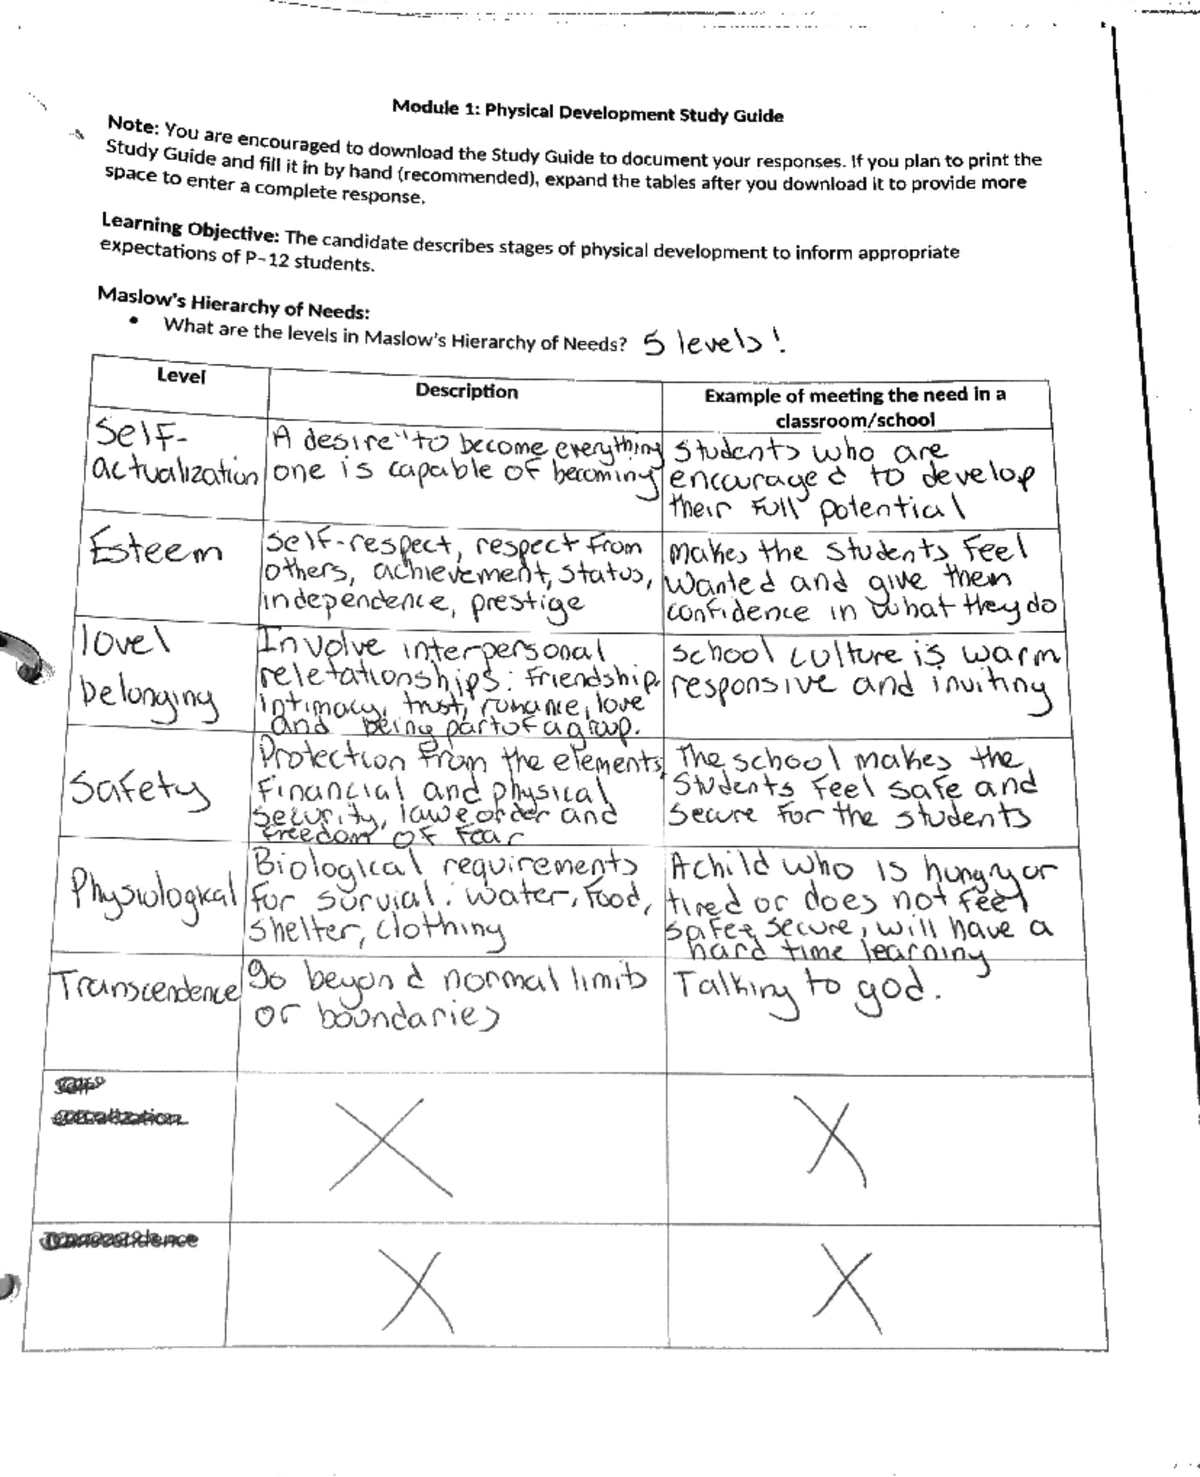 Module 1: Physical Development Study Guide
Note: You are encouraged to download the Study Guide to document your responses. If you plan to print the
Study Guide and fill it in by hand (recommended), expand the tables after you download it to provide more
space to enter a complete response.
Learning Objective: The candidate describes stages of physical development to inform appropriate
expectations of P-12 students.
Maslow's Hierarchy of Needs:
• What are the levels in Maslow's Hierarchy of Needs? 5 levels!
Level
Description
Example of meeting the need in a
classroom/school
Self-
actualization
A desire "to become everything
one is capable of becoming
Students who are
encouraged to develop
their full potential
Esteem
Self-respect, respect from
others, achievement, status,
independence, prestige
makes the students feel
wanted and give them
confidence in what they do
love/
belonging
Involve interpersonal
reletationships: friendship,
intimacy, trust, romance, love
and being part of a group.
School culture is warm
responsive and inviting
Safety
Protection from the elements,
financial and physical
security, law & order and
freedom of fear
The school makes the
students feel safe and
secure for the students
Physiological
Biological requirements
for survial: water, food,
shelter, clothing
A child who is hungry or
tired or does not feel
safe & secure, will have a
hard time learning
Transcendence
go beyond normal limits
or boundaries
Talking to god.